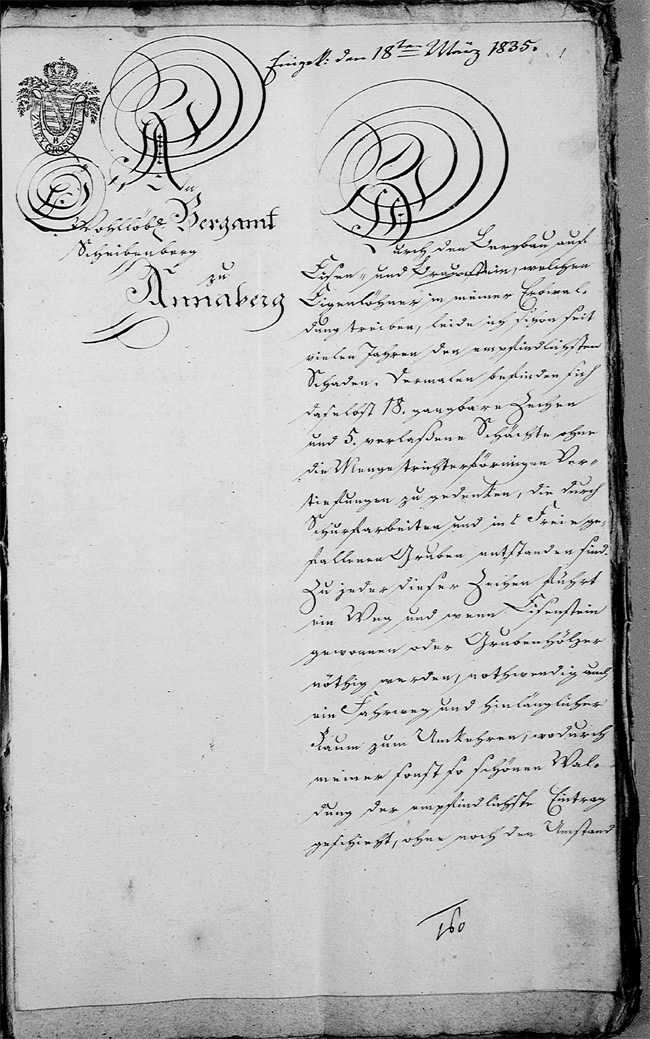 Eingek: den 18ten März 1835.
ZWEY GROSCHEN
An
E.
Wohllöbl. Bergamt
Scheibenberg
zu
Annaberg
Durch den Bergbau auf
Eisen- und Braunstein, welchen
Eigenlöhner in meiner Erbwal-
dung treiben, leide ich schon seit
vielen Jahren den empfindlichsten
Schaden. Dermalen befinden sich
daselbst 18. gangbare Zechen
und 5. verlaßene Schächte ohne
die Menge trichterförmigen Ver-
tiefungen zu gedenken, die durch
Schurfarbeiten und in's Freie ge-
fallenen Gruben entstanden sind.
Zu jeder dieser Zechen führt
ein Weg und wenn Eisenstein
gewonnen oder Grubenhölzer
nöthig werden, nothwendig auch
ein Fahrweg und hinlänglicher
Raum zum Umkehren, wodurch
meiner sonst so schönen Wal-
dung der empfindlichste Eintrag
geschieht, ohne noch den Umstand
160